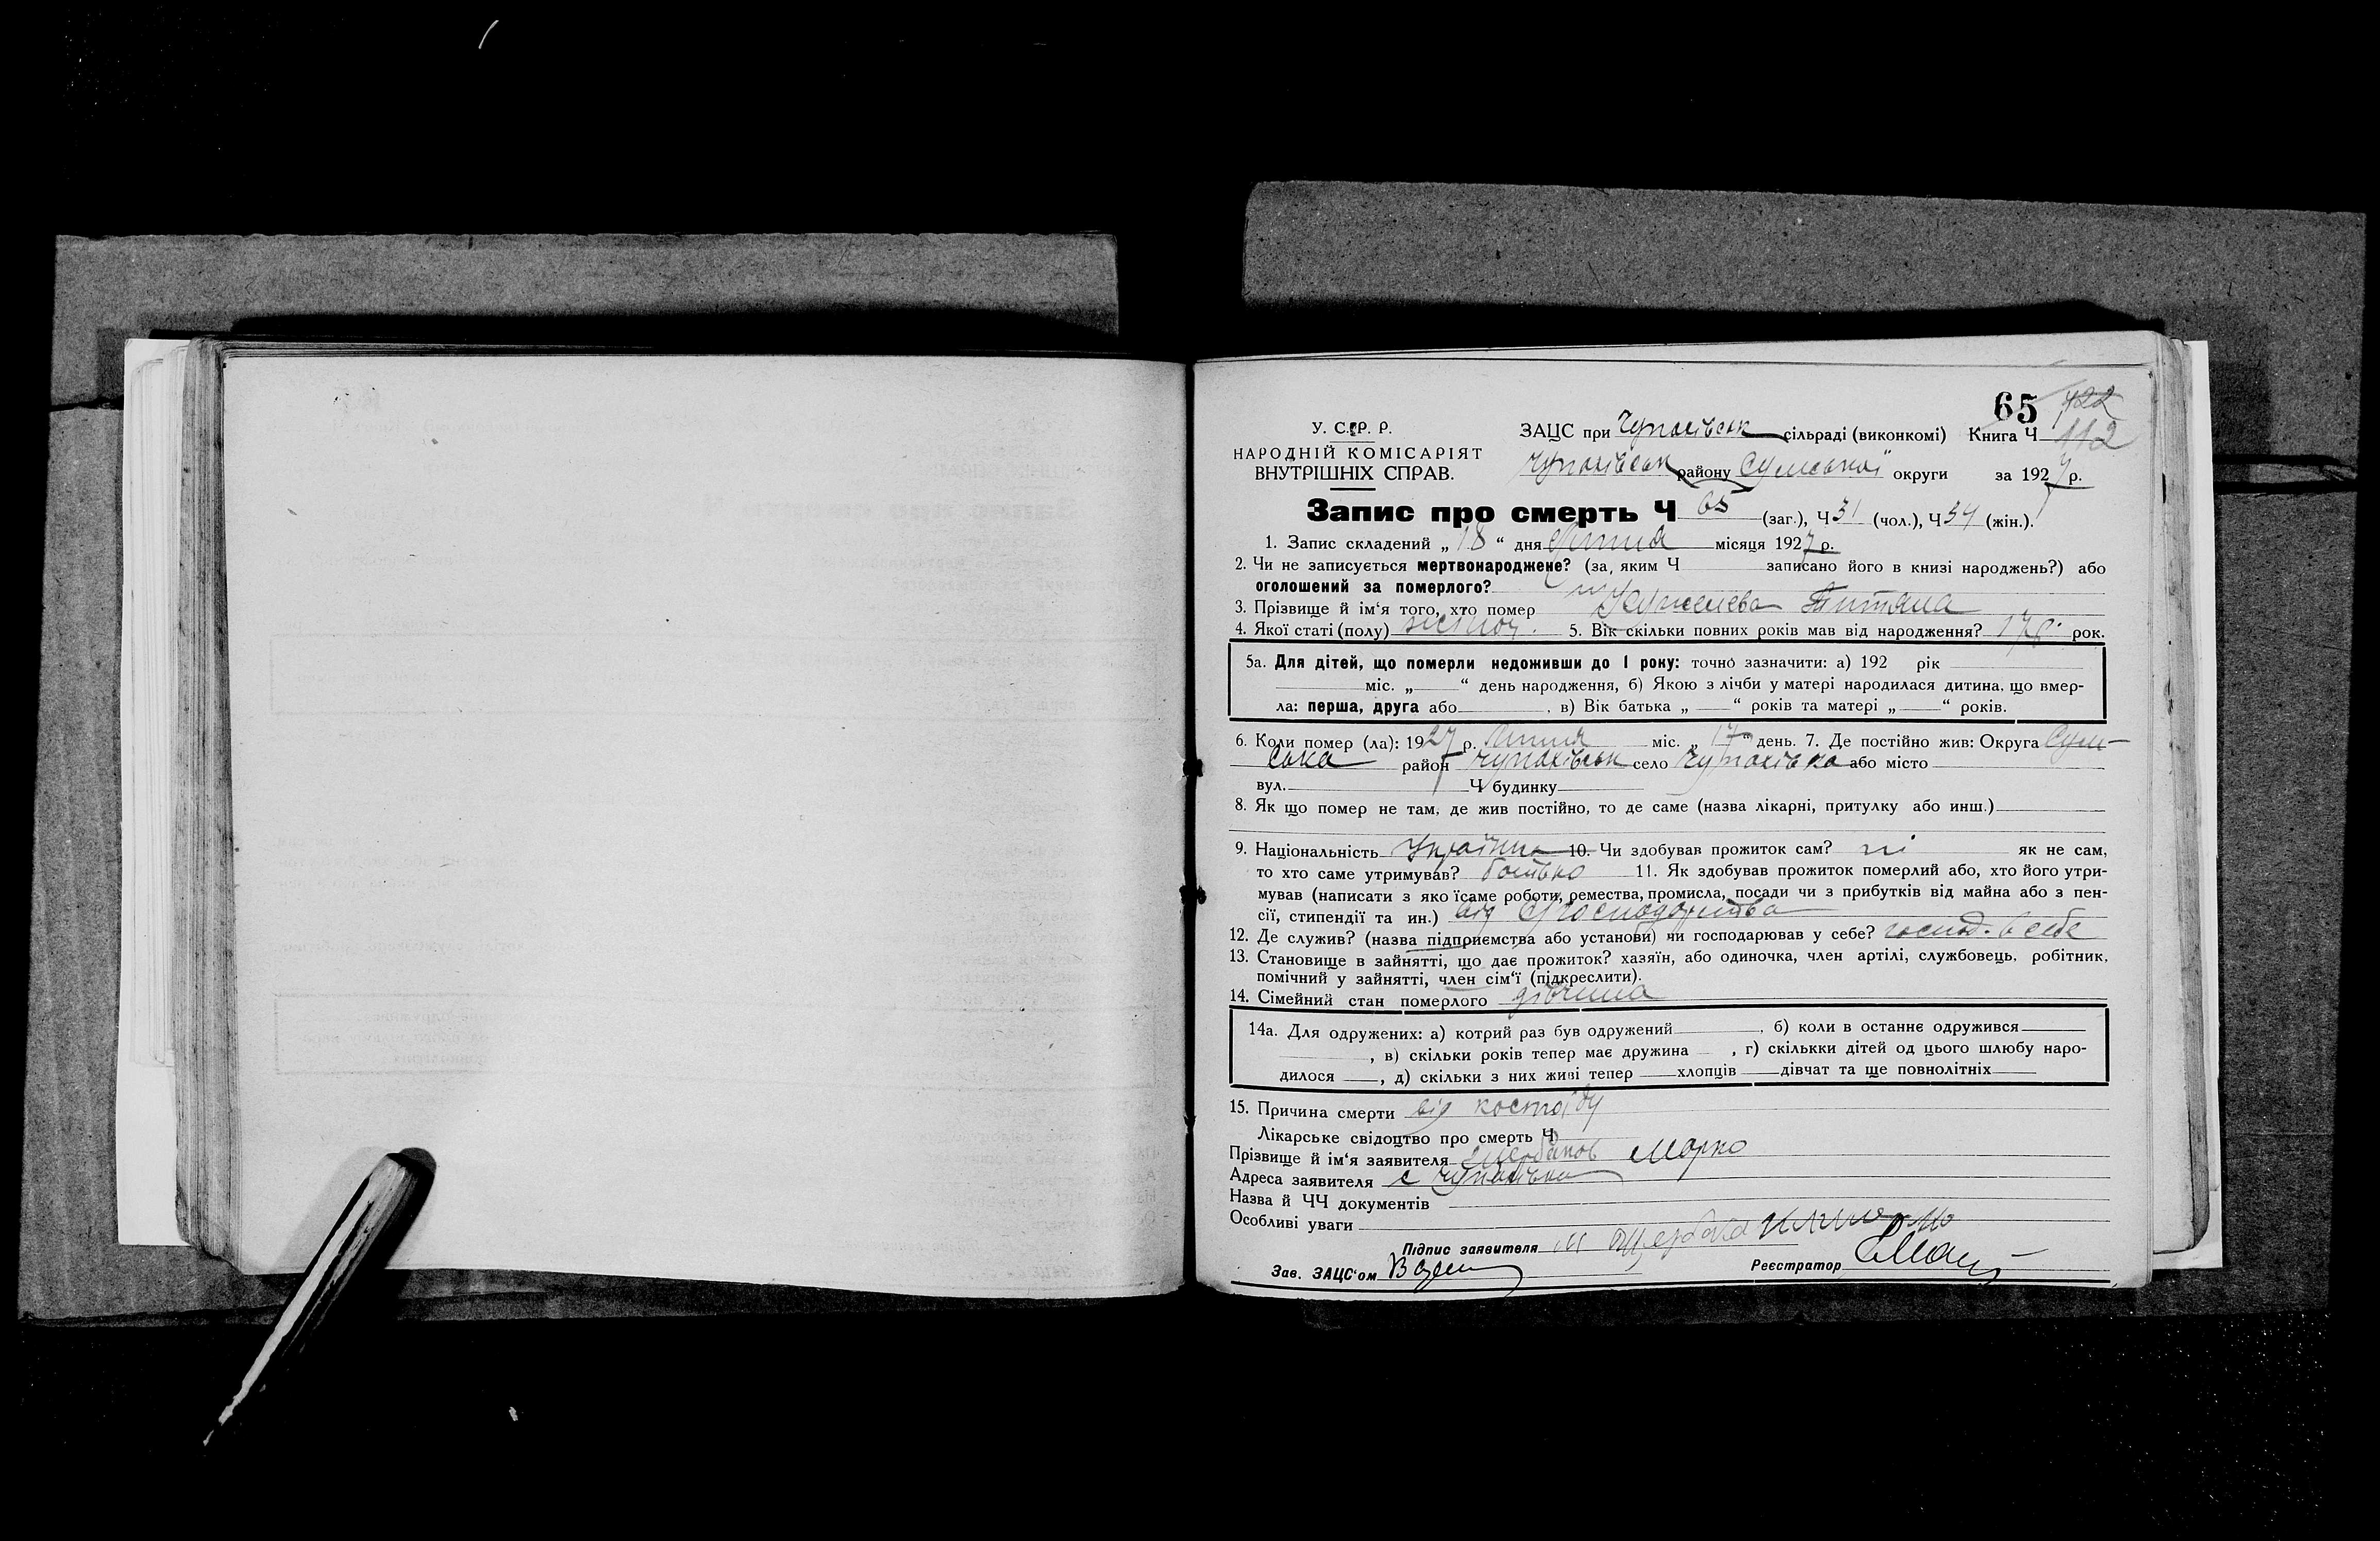 65 422
У. С. Р. Р. ЗАЦС при Чупахівськ сільраді (виконкомі) Книга Ч 112
НАРОДНІЙ КОМІСАРІЯТ
ВНУТРІШНІХ СПРАВ. Чупахівськ району Сумської округи за 1927 р.
Запис про смерть Ч 65 (заг.), Ч 31 (чол.), Ч 34 (жін.).
1. Запис складений „ 18 “ дня Липня місяця 1927 р.
2. Чи не записується мертвонароджене? (за яким Ч записано його в книзі народжень?) або
оголошений за померлого? ні
3. Прізвище й ім‘я того, хто помер Титяна
4. Якої статі (полу) жіноч. 5. Вік скільки повних років мав від народження? 17 рок.
5а. Для дітей, що померли недоживши до 1 року: точно зазначити: а) 192 рік
міс. „ “ день народження, б) Якою з лічби у матері народилася дитина, що вмер-
ла: перша, друга або , в) Вік батька „ “ років та матері „ “ років.
6. Коли помер (ла): 1927 р. Липня міс. „ 17 “ день. 7. Де постійно жив: Округа Сум-
ська район Чупахівськ село Чупахівка або місто
вул. Ч будинку
8. Як що помер не там, де жив постійно, то де саме (назва лікарні, притулку або инш.)
9. Національність Українка 10. Чи здобував прожиток сам? ні як не сам,
то хто саме утримував? батько 11. Як здобував прожиток померлий або, хто його утри-
мував (написати з яко їсаме роботи, ремества, промисла, посади чи з прибутків від майна або з пен-
сії, стипендії та ин.) від С/господарства
12. Де служив? (назва підприємства або установи) чи господарював у себе? господ. в себе
13. Становище в зайнятті, що дає прожиток? хазяїн, або одиночка, член артілі, службовець, робітник,
помічний у зайнятті, член сім‘ї (підкреслити).
14. Сімейний стан померлого дівчина
14а. Для одружених: а) котрий раз був одружений , б) коли в останнє одружився
, в) скільки років тепер має дружина , г) скількки дітей од цього шлюбу наро-
дилося , д) скільки з них живі тепер хлопців дівчат та ще повнолітніх
15. Причина смерти від костоїду
Лікарське свідоцтво про смерть Ч
Прізвище й ім‘я заявителя Марко
Адреса заявителя с Чупахівка
Назва й ЧЧ документів
Особливі уваги
Підпис заявителя Щербака
Зав. ЗАЦС‘ом Реєстратор